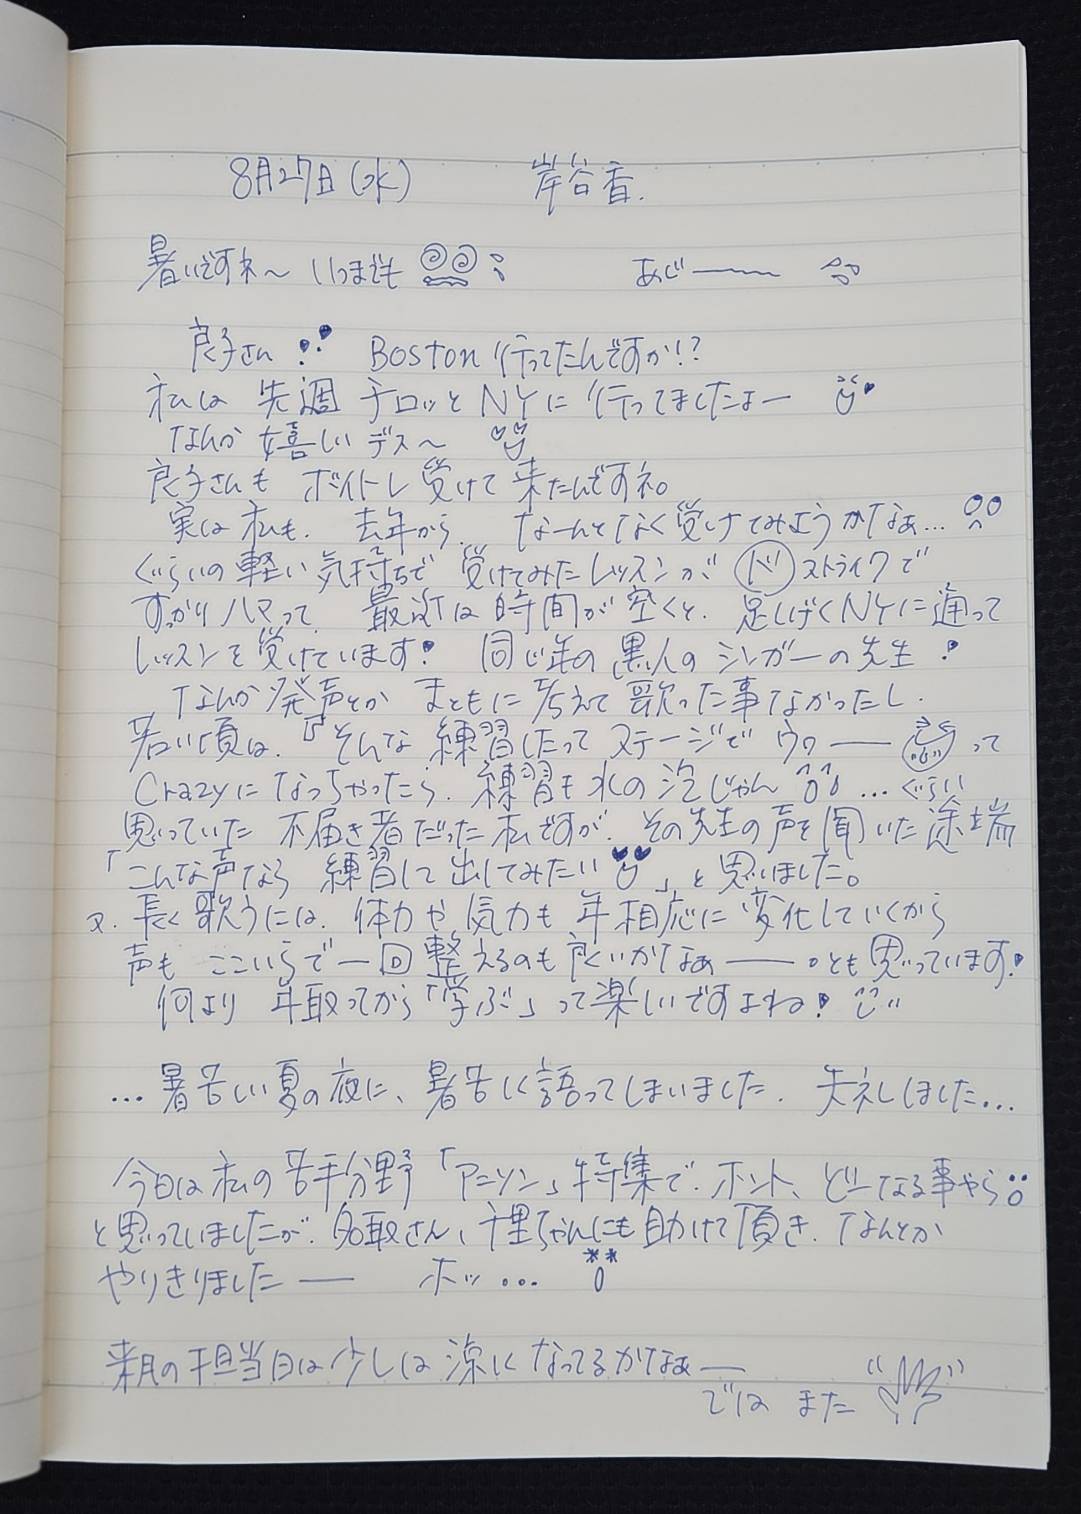 8月27日(水) 岸谷香.
暑いですネ〜 いつまでも あぢーーー
良子さん!! Boston 行ってたんですか!?
私は 先週 チロッと NYに 行ってましたよー
なんか 嬉しい デス〜
良子さんも ボイトレ 受けて 来たんですネ。
実は 私も. 去年から. なーんとなく 受けてみようかなぁ...
ぐらいの 軽い 気持ちで 受けてみた レッスンが ド ストライクで
すっかりハマって. 最近は 時間が 空くと. 足しげく NYに 通って
レッスンを 受けています! 同じ年の 黒人の シンガーの 先生!
なんか 発声とか まともに 考えて 歌った事なかったし.
若い頃は.「そんな 練習したって ステージで ウワーー って
Crazyに なっちゃったら. 練習も 水の泡じゃん ...ぐらい
思っていた 不届き者だった 私ですが. その先生の 声を 聞いた途端
「こんな声なら 練習して 出してみたい 」と 思いました。
又. 長く 歌うには. 体力や 気力も 年相応に 変化していくから
声も ここいらで 一回 整えるのも 良いかなぁーー。とも 思っています!
何より 年取ってから「学ぶ」って楽しいですよね!
...暑苦しい 夏の夜に、暑苦しく 語ってしまいました. 失礼しました...
今日は 私の 苦手分野「アニソン」特集で. ホント、どーなる事やら
と思っていましたが. 名取さん、千里ちゃんにも 助けて 頂き. なんとか
やりきりましたーー ホッ...
来月の 担当日は 少しは 涼しく なってるかなぁー
では また